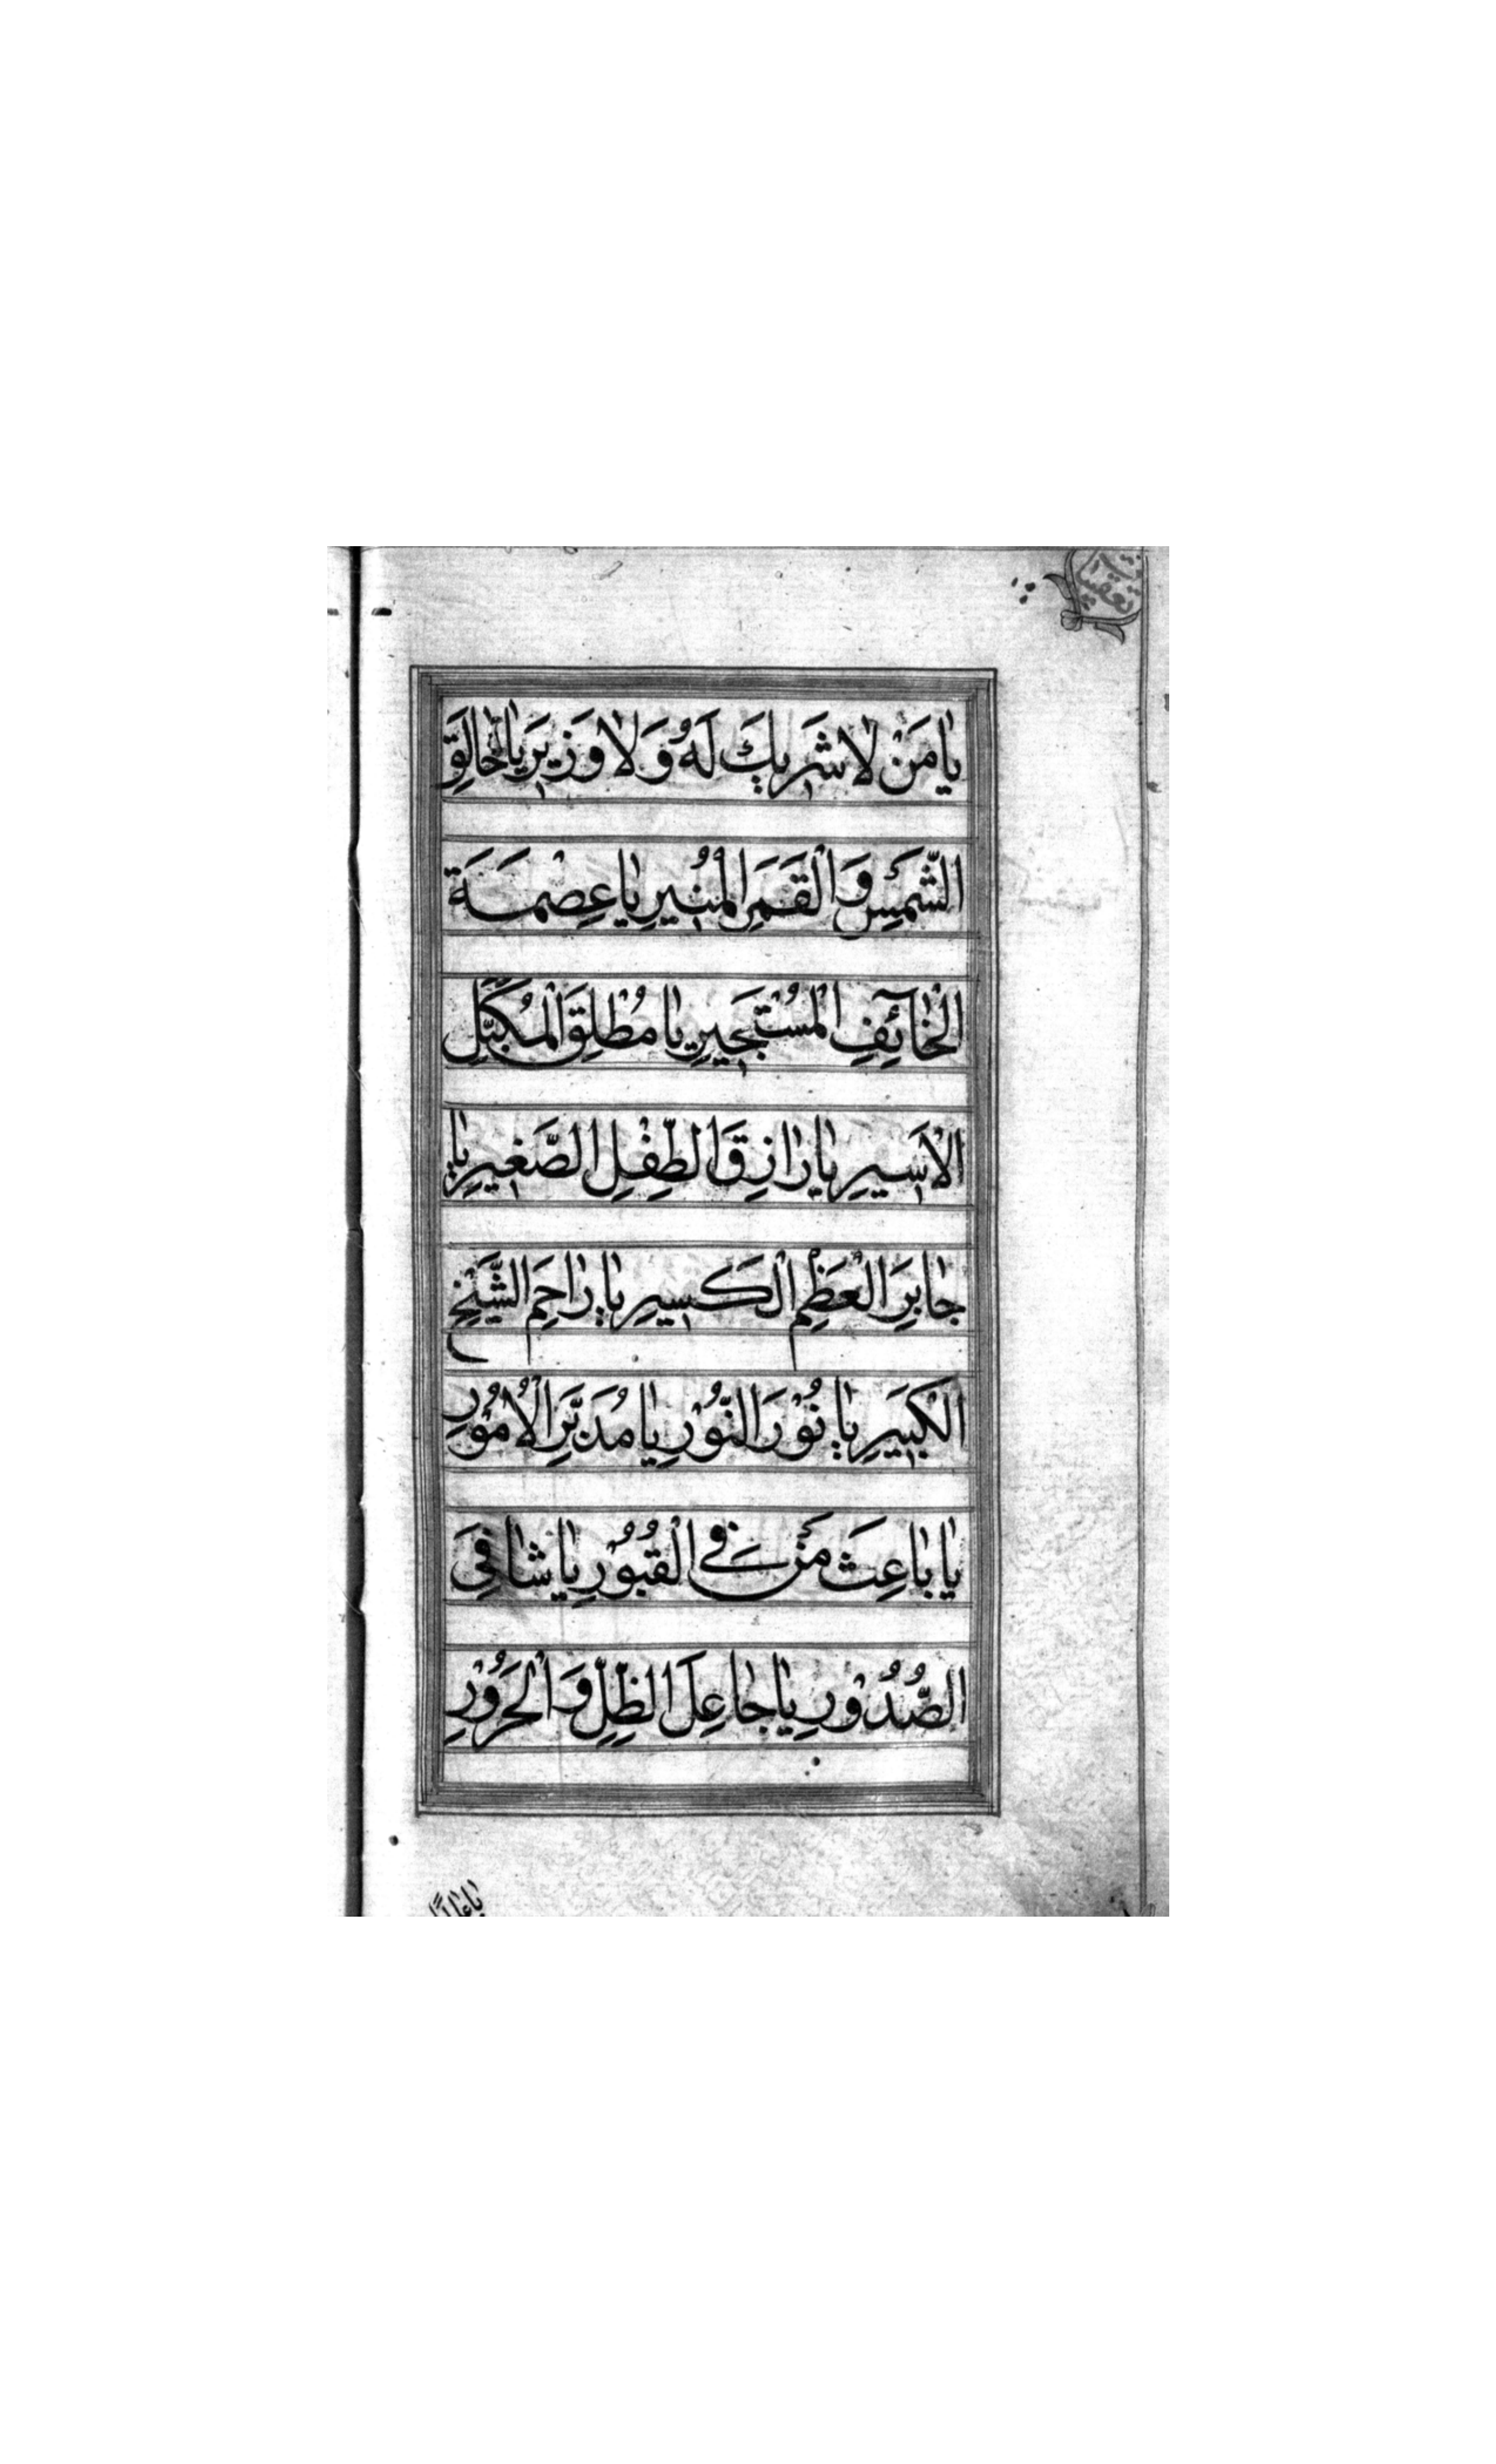 يٰا مَنْ لٰا شَرِيكَ لَهُ وَلٰا وَزِيرَ يٰا خٰالِقَ
الشَّمْسِ وَالْقَمَرِ الْمُنِيرِ يٰا عِصْمَةَ
الْخٰآئِفِ الْمُسْتَجِيرِ يٰا مُطْلِقَ الْمُكَبَّلِ
الْاَسِيرِ يٰا رٰازِقَ الطِّفْلِ الصَّغِيرِ يٰا
جٰابِرَ الْعَظْمِ الْكَسِيرِ يٰا رٰاحِمَ الشَّيْخِ
الْكَبِيرِ يٰا نُوْرَ النُّوْرِ يٰا مُدَبِّرَ الْاُمُوْرِ
يٰا بٰاعِثَ مَنْ فِي الْقُبُوْرِ يٰا شٰافِيَ
الصُّدُوْرِ يٰا جٰاعِلَ الظِّلِّ وَالْحَرُوْرِ